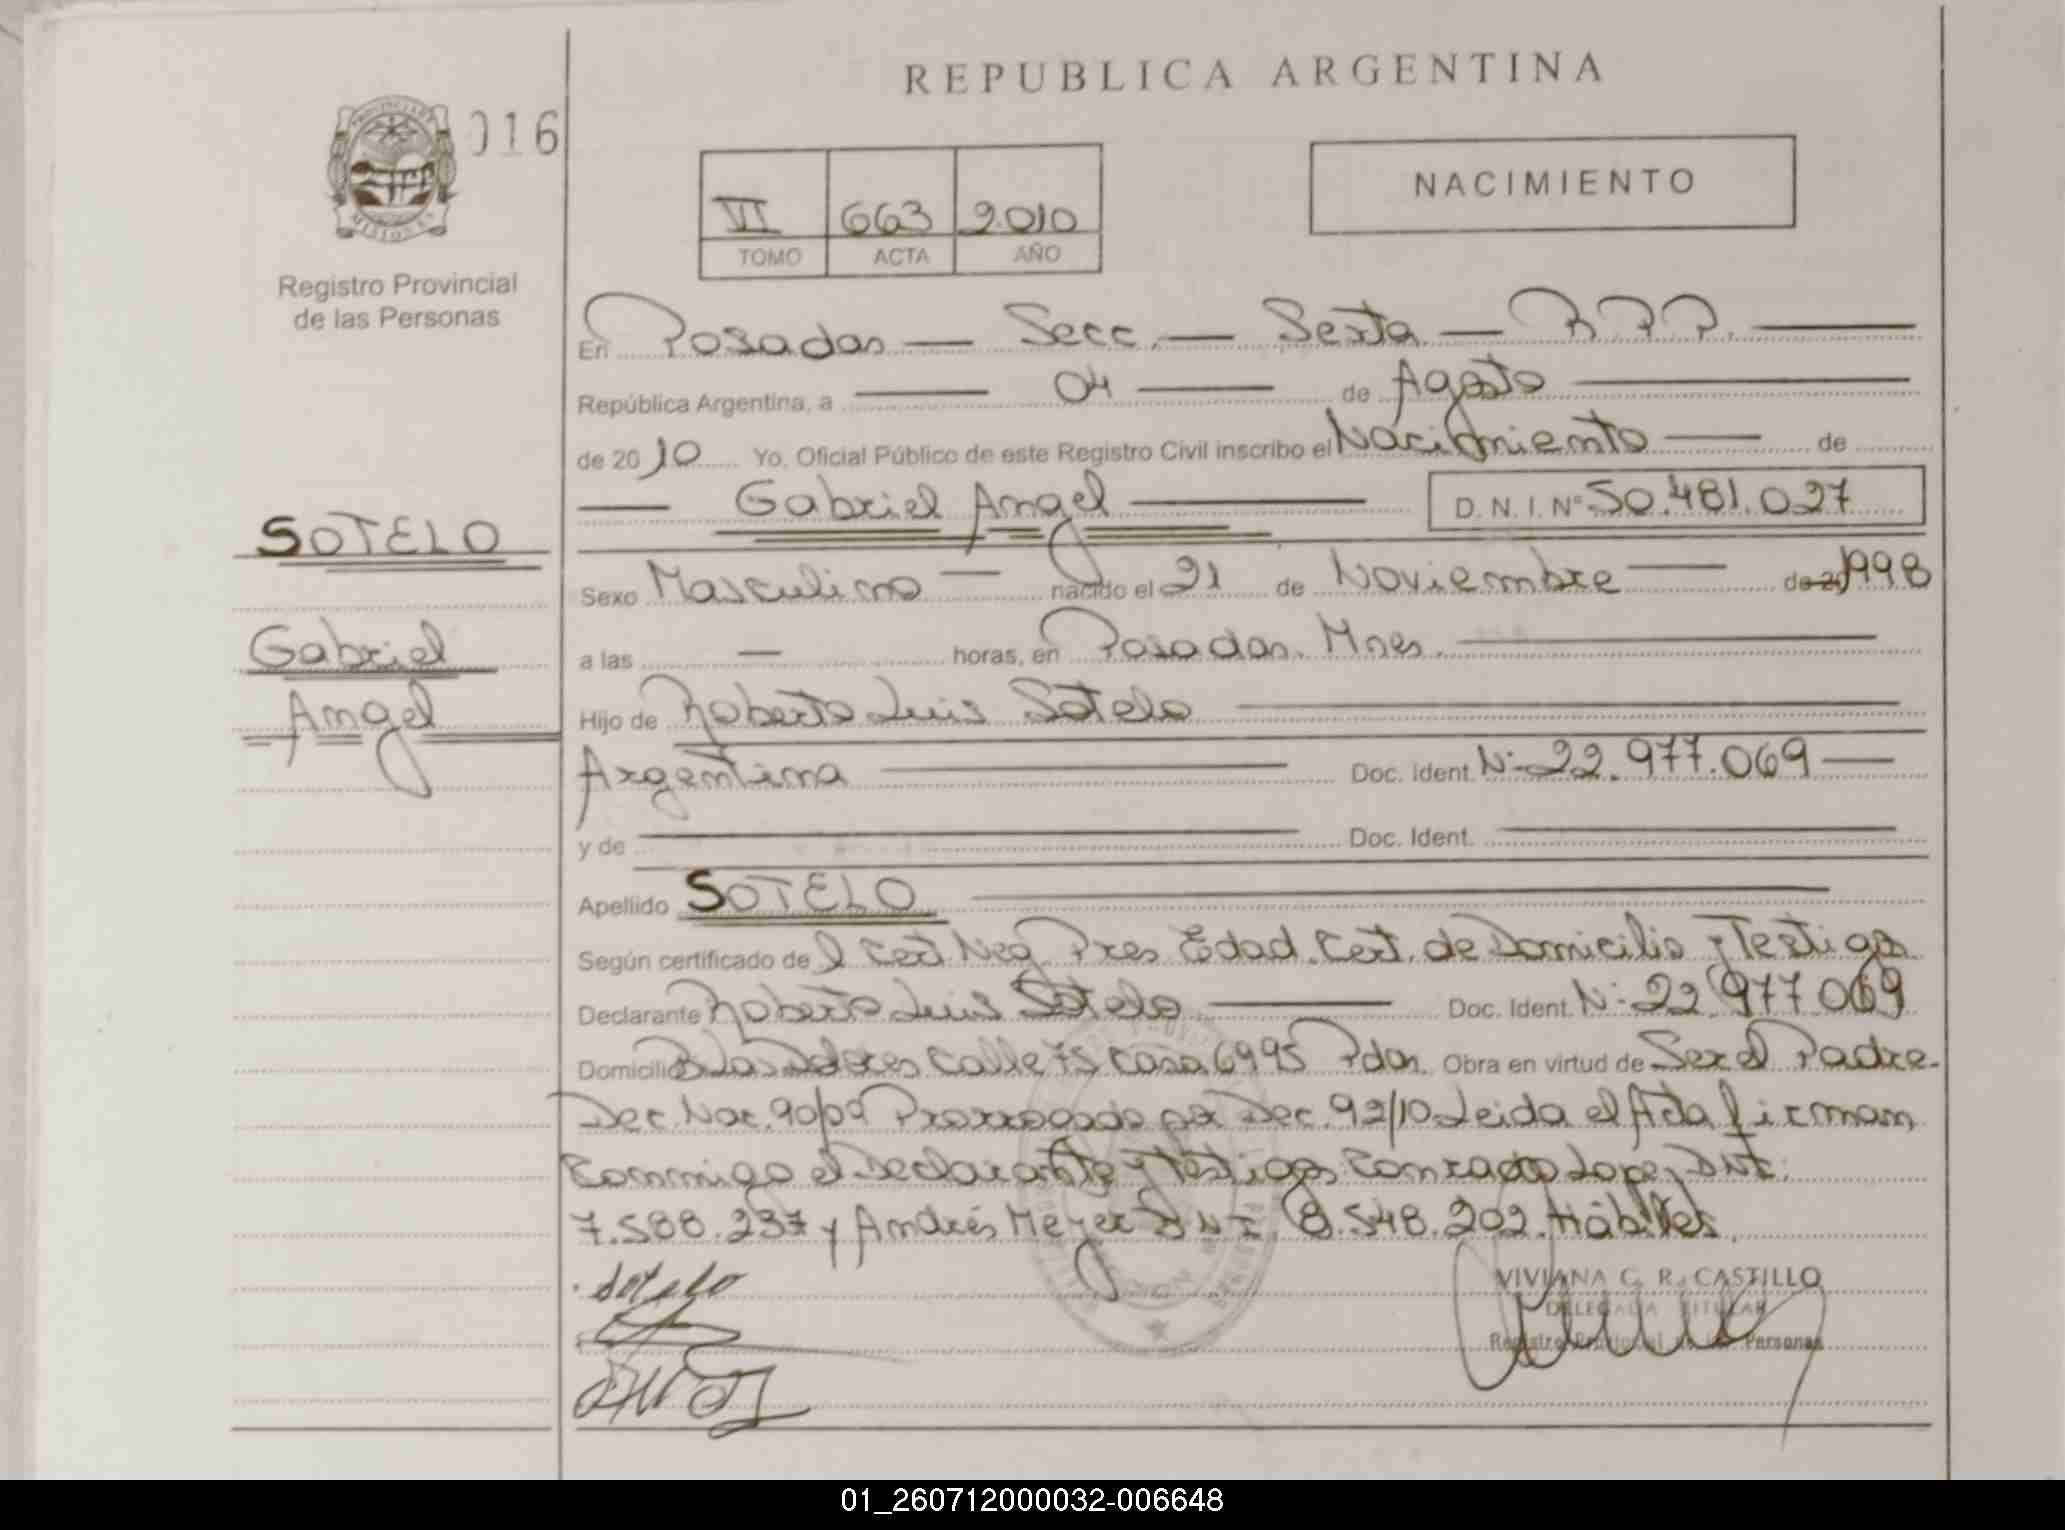 REPUBLICA ARGENTINA
016
NACIMIENTO
VI 663 2.010
TOMO ACTA AÑO
Registro Provincial
de las Personas
En Posadas — Secc. — Sexta — R.P.P.
República Argentina, a — 04 — de Agosto
de 2010 Yo, Oficial Público de este Registro Civil inscribo el Nacimiento — de
— Gabriel Angel — D.N.I. Nº 50.481.027
SOTELO
Gabriel
Angel
Sexo Masculino — nacido el 21 de Noviembre — de 20 1998
a las — horas, en Posadas. Mnes.
Hijo de Roberto Luis Sotelo
Argentina — Doc. Ident. Nº 22.977.069 —
y de — Doc. Ident. —
Apellido SOTELO
Según certificado de Cert Neg Pres Edad. Cert. de Domicilio y Testigos
Declarante Roberto Luis Sotelo — Doc. Ident. Nº 22.977.069
Domicilio Bº Las Dolores Calle 75 Casa 6995 Pdas. Obra en virtud de Ser el Padre.
Dec. Nac. 90/09 Prorrogado por Dec. 92/10. Leida el Acta firman
Conmigo el Declarante y Testigos Conrado Lope, DNI:
7.588.237 y Andrés Meyer DNI 8.548.202. Hábiles.
Sotelo
VIVIANA C. R. CASTILLO
DELEGADA TITULAR
Registro Provincial de las Personas
01_260712000032-006648